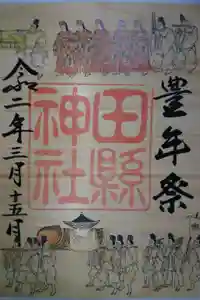 豊年祭
田縣神社
令二年三月十五月